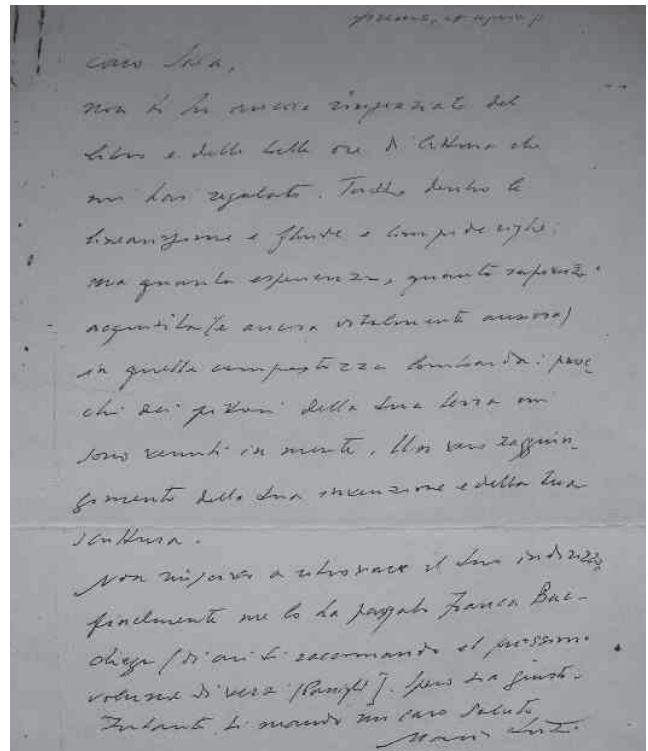 caro Isea,
non ti ho ancora ringraziato del
libro e delle belle ore di lettura che
mi hai regalato. Tutto dentro le
lineari e fluide e limpide righe:
ma quanta esperienza, quanta sapienza
acquisita (e ancora vitalmente ansiosa)
in quella compostezza lombarda: parec
chi dei pittori della tua terra mi
sono venuti in mente. Un vero raggiun-
gimento della tua invenzione e della tua
scrittura.
Non riuscivo a ritrovare il tuo indirizzo,
finalmente me lo ha passato Franca Bac-
chiega (di cui ti raccomando il prossimo
volume di versi). Spero sia giusto.
Intanto ti mando un caro saluto
Mario Luzi